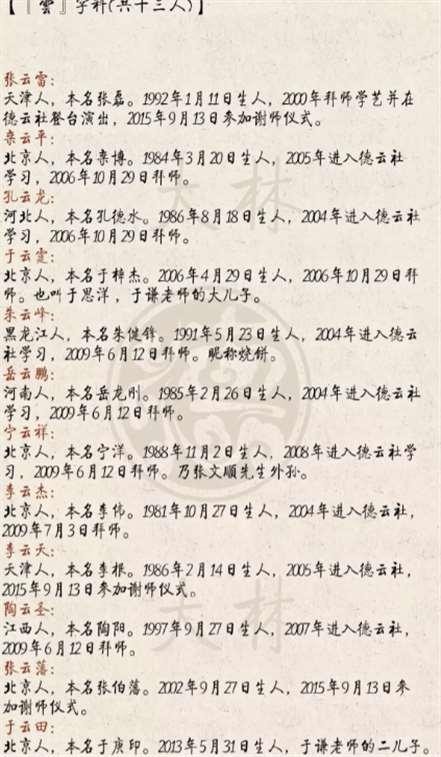 【『雲』字科(共十三人)】
张云雷：
天津人，本名张磊。1992年1月11日生人，2000年拜师学艺并在
德云社登台演出，2015年9月13日参加谢师仪式。
栾云平：
北京人，本名栾博。1984年3月20日生人，2005年进入德云社
学习，2006年10月29日拜师。
孔云龙：
河北人，本名孔德水。1986年8月18日生人，2004年进入德云社
学习，2006年10月29日拜师。
于云霆：
北京人，本名于梓杰。2006年4月29日生人，2006年10月29日拜
师。也叫于思洋，于谦老师的大儿子。
朱云峰：
黑龙江人，本名朱健锋。1991年5月23日生人，2004年进入德云
社学习，2009年6月12日拜师。昵称烧饼。
岳云鹏：
河南人，本名岳龙刚。1985年2月26日生人，2004年进入德云社
学习，2009年6月12日拜师。
宁云祥：
北京人，本名宁洋。1988年11月2日生人，2008年进入德云社学
习，2009年6月12日拜师。乃张文顺先生外孙。
李云杰：
北京人，本名李伟。1981年10月27日生人，2004年进入德云社，
2009年7月3日拜师。
李云天：
天津人，本名李根。1986年2月14日生人，2005年进入德云社，
2015年9月13日参加谢师仪式。
陶云圣：
江西人，本名陶阳。1997年9月27日生人，2007年进入德云社，
2009年6月12日拜师。
张云藩：
北京人，本名张伯藩。2002年9月27日生人，2015年9月13日参
加谢师仪式。
于云田：
北京人，本名于庚印。2013年5月31日生人，于谦老师的二儿子。